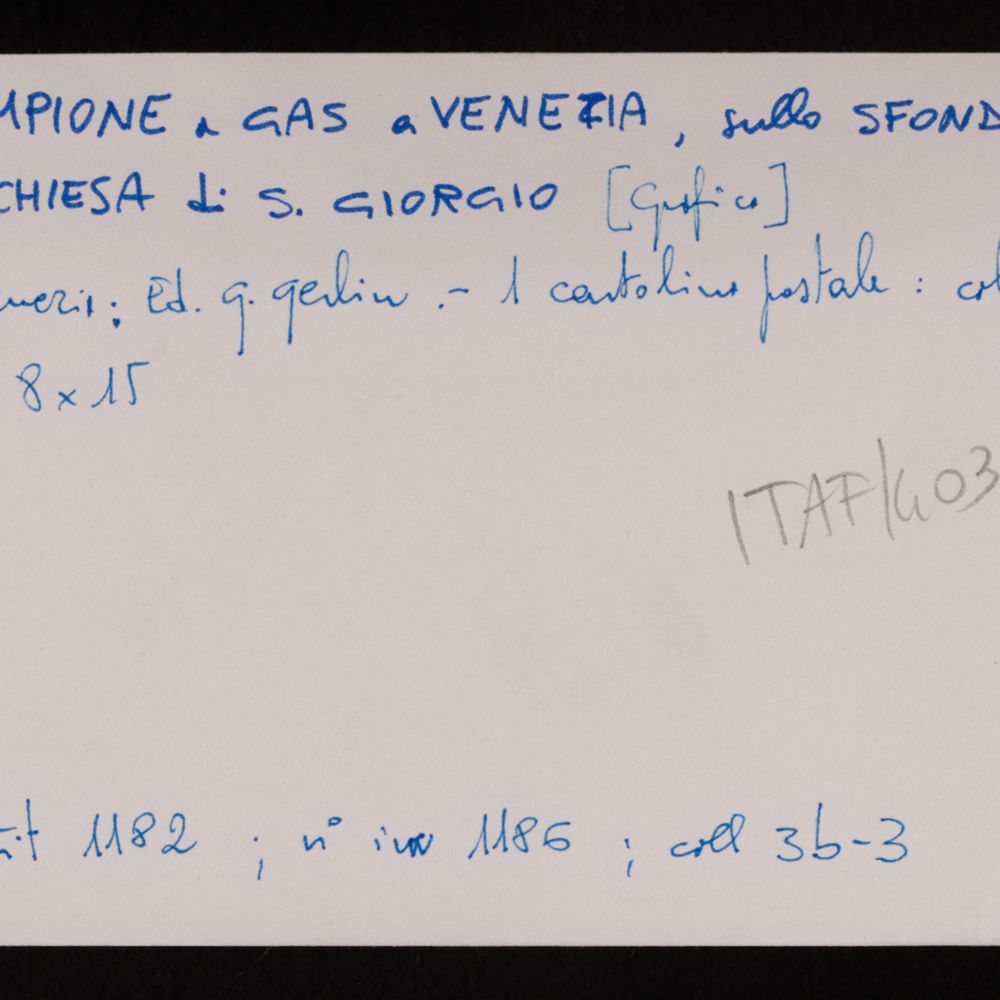 MPIONE a GAS a VENEZIA, sullo SFOND
CHIESA di S. GIORGIO [Grafica]
Ed. G. Gerlin .- 1 cartolina postale : col
8 x 15
ITAF/G03
1182 ; n° inv 1186 ; coll 3b-3